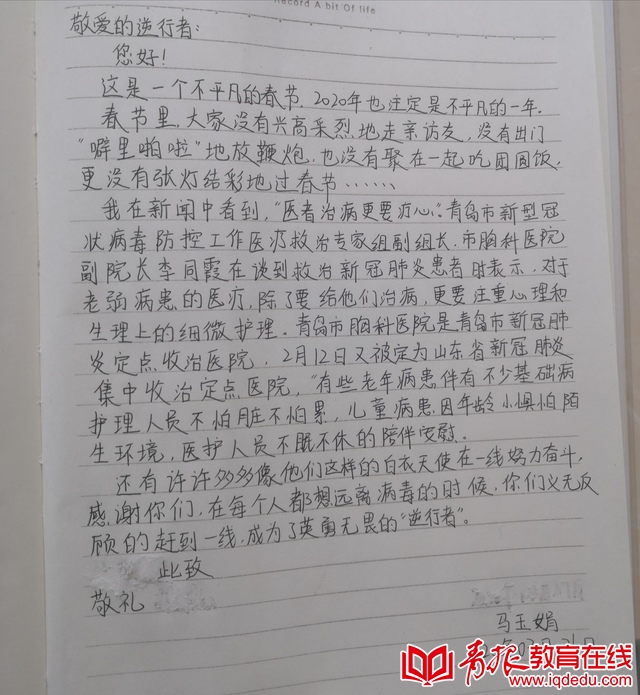 Record A bit Of life
敬爱的逆行者：
您好！
这是一个不平凡的春节，2020年也注定是不平凡的一年，
春节里，大家没有兴高采烈地走亲访友，没有出门
“噼里啪啦”地放鞭炮，也没有聚在一起吃团圆饭，
更没有张灯结彩地过春节……
我在新闻中看到，“医者治病更要疗心”。青岛市新型冠
状病毒防控工作医疗救治专家组副组长，市胸科医院
副院长李同霞在谈到救治新冠肺炎患者时表示，对于
老弱病患的医疗，除了要给他们治病，更要注重心理和
生理上的细微护理。青岛市胸科医院是青岛市新冠肺
炎定点收治医院，2月12日又被定为山东省新冠肺炎
集中收治定点医院，“有些老年病患伴有不少基础病
护理人员不怕脏不怕累，儿童病患因年龄小惧怕陌
生环境，医护人员不眠不休的陪伴安慰。
还有许许多多像他们这样的白衣天使在一线努力奋斗，
感谢你们，在每个人都想远离病毒的时候，你们义无反
顾的赶到一线，成为了英勇无畏的“逆行者”。
此致
敬礼
马玉娟
青报教育在线
www.iqdedu.com